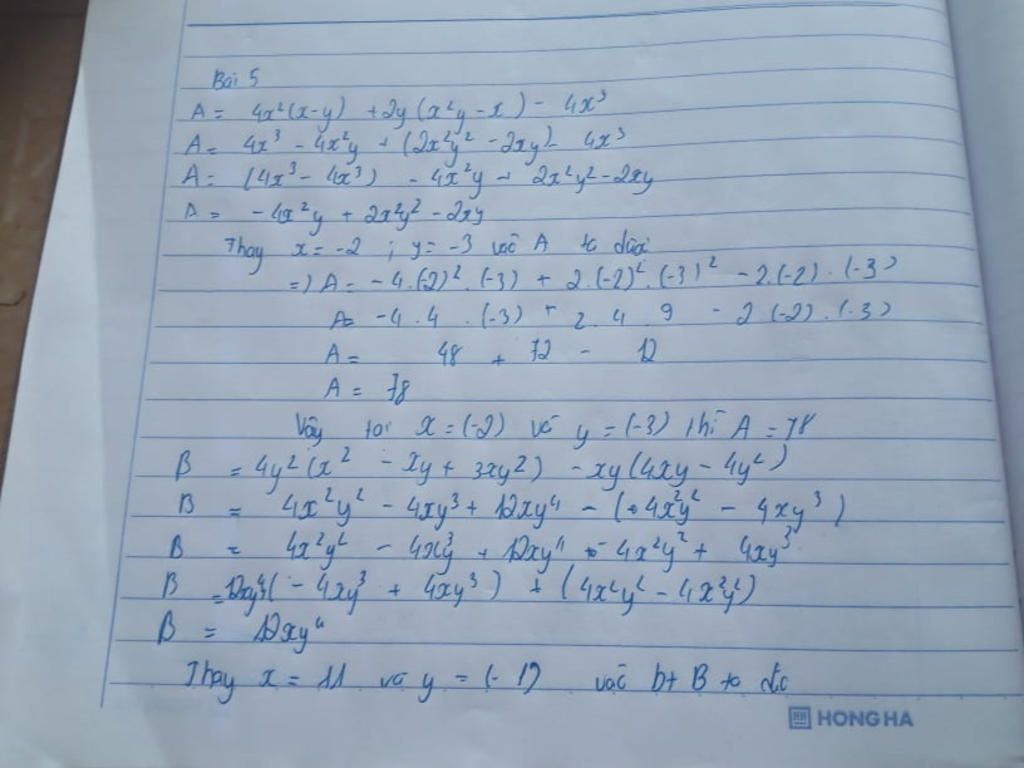 Bài 5
A = 4x²(x-y) + 2y(x²y - x) - 4x³
A = 4x³ - 4x²y + (2x²y² - 2xy) - 4x³
A = (4x³ - 4x³) - 4x²y + 2x²y² - 2xy
A = - 4x²y + 2x²y² - 2xy
Thay x = -2 ; y = -3 vào A ta được
=) A = - 4.(-2)².(-3) + 2.(-2)².(-3)² - 2.(-2).(-3)
A = -4.4.(-3) + 2.4.9 - 2(-2).(-3)
A = 48 + 72 - 12
A = 78
Vậy tại x = (-2) và y = (-3) thì A = 78
B = 4y²(x² - xy + 3xy²) - xy(4xy - 4y²)
B = 4x²y² - 4xy³ + 12xy⁴ - (4x²y² - 4xy³)
B = 4x²y² - 4xy³ + 12xy⁴ - 4x²y² + 4xy³
B = 12xy⁴(- 4xy³ + 4xy³) + (4x²y² - 4x²y²)
B = 12xy⁴
Thay x = 11 và y = (-1) vào bt B ta đc
HONG HA